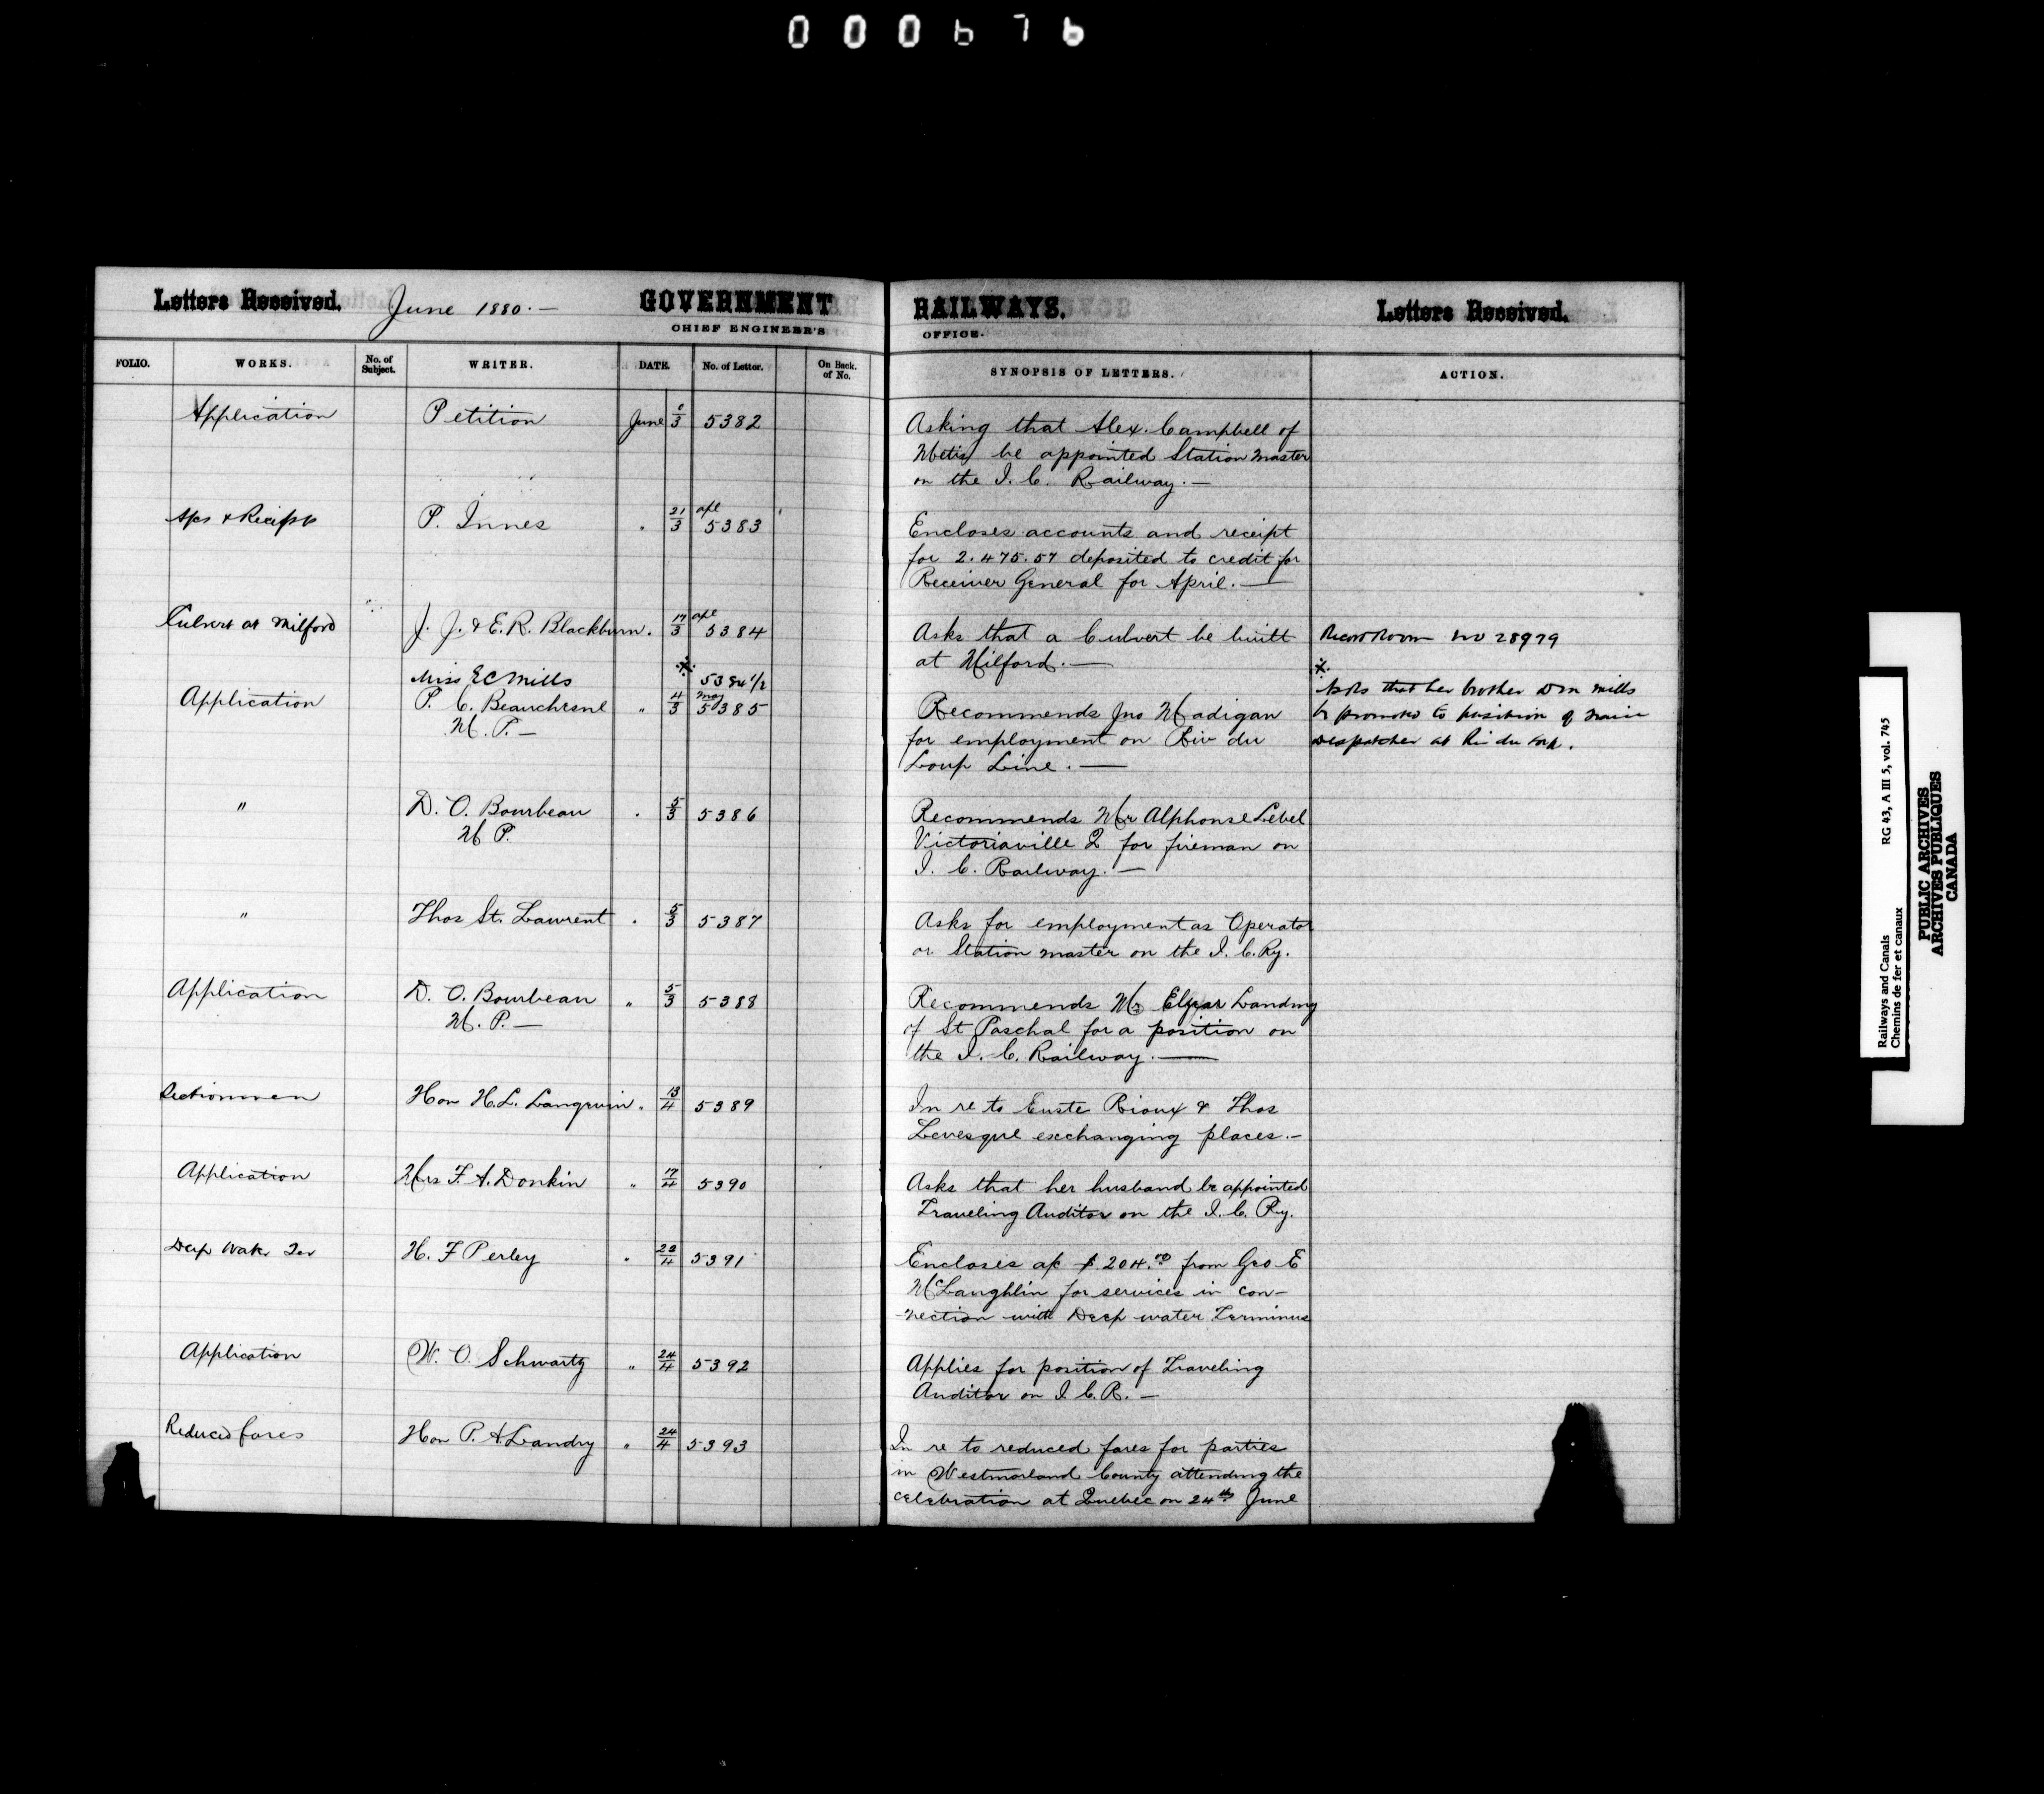 000676
Letters Received. June 1880.— GOVERNMENT RAILWAYS. Letters Received.
CHIEF ENGINEER'S OFFICE.
FOLIO. WORKS. No. of Subject. WRITER. DATE. No. of Letter. On Back. of No. SYNOPSIS OF LETTERS. ACTION.
Application Petition June 3 5382 Asking that Alex. Campbell of
Metis be appointed Station Master
on the I. C. Railway.—
P. Innes " 21/3 apl 5383 Encloses accounts and receipt
for 2.475.57 deposited to credit for
Receiver General for April.—
Culvert at Milford J. J. & E. R. Blackburn. 17/3 apl 5384 Asks that a Culvert be built Record Room No 28979
at Milford.—
Miss E C Mills 5384 1/2 Asks that her brother Wm Mills
Application P. C. Beauchesne M. P.— " 4/3 may 5385 Recommends Jno Madigan be promoted to position of train
for employment on Riv du despatcher at Riv du Loup.
Loup Line.—
" D. O. Bourbeau M P. " 5/3 5386 Recommends Mr Alphonse Lebel
Victoriaville Q for fireman on
I. C. Railway.—
" Thos St. Laurent " 5/3 5387 Asks for employment as Operator
or Station master on the I. C. Ry.
Application D. O. Bourbeau M. P.— " 5/3 5388 Recommends Mr Elzear Landry
of St Paschal for a position on
the I. C. Railway.—
Sectionmen Hon H. L. Langevin " 13/4 5389 In re to Euste Rioux & Thos
Levesque exchanging places.—
Application Mrs F. A. Donkin " 17/4 5390 Asks that her husband be appointed
Traveling Auditor on the I. C. Ry.
Deep Water Ter H. F Perley " 23/4 5391 Encloses a/c $204.00 from Geo E
McLaughlin for services in con-
-nection with Deep water Terminus
Application W. O. Schwartz " 24/4 5392 Applies for position of Traveling
Auditor on I. C. R.—
Reduced fares Hon P. A. Landry " 24/4 5393 In re to reduced fares for parties
in Westmorland County attending the
celebration at Quebec on 24th June
Railways and Canals RG 43, A III 5, vol. 745
Chemins de fer et canaux
PUBLIC ARCHIVES
ARCHIVES PUBLIQUES
CANADA